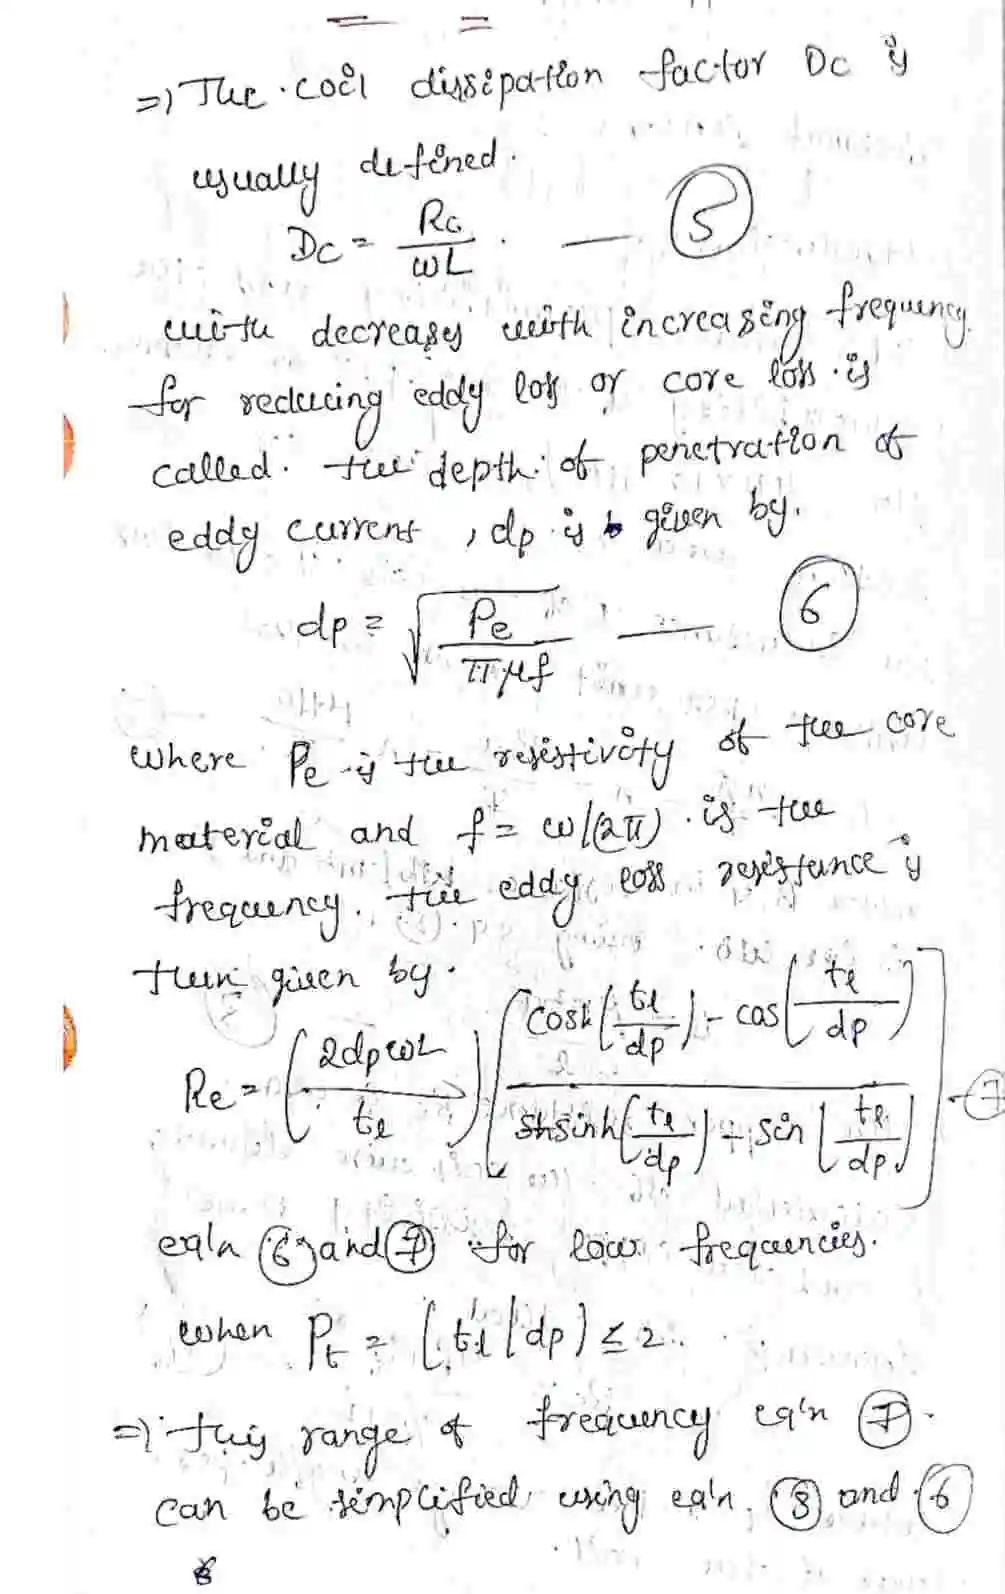 => The coil dissipation factor Dc is
usually defined.
Dc = Rc/ωL — (5)
with decreases with increasing frequency
for reducing eddy loss or core loss is
called. the depth of penetration of
eddy current, dp is given by.
dp = √(Pe/πμf) — (6)
where Pe is the resistivity of the core
material and f = ω/(2π) is the
frequency. the eddy loss resistance is
then given by.
Re = (2dpωL/tl) [(cosh(tl/dp) - cos(tl/dp))/(sinh(tl/dp) + sin(tl/dp))] — (7)
eq'n (6) and (7) for low frequencies.
when Pt = (tl/dp) ≤ 2.
=> this range of frequency eq'n (7).
can be simplified using eq'n (3) and (6)